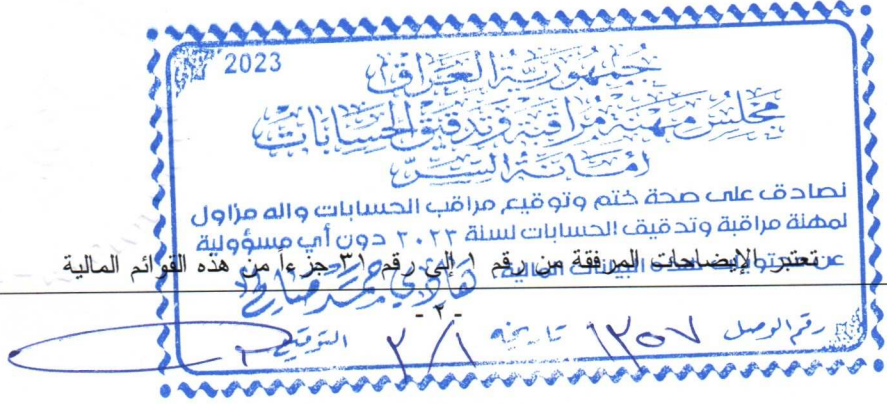 2023
جمهورية العراق
مجلس مهنة مراقبة وتدقيق الحسابات
أمانة السر
نصادق على صحة ختم وتوقيع مراقب الحسابات وانه مزاول
لمهنة مراقبة وتدقيق الحسابات لسنة ٢٠٢٢ دون أي مسؤولية
تعتبر الإيضاحات المرفقة من رقم ١ إلى رقم ٣١ جزءاً من هذه القوائم المالية
- ٢ -
رقم الوصل ١٣٥٧ تاريخه ٢/١ التوقيع